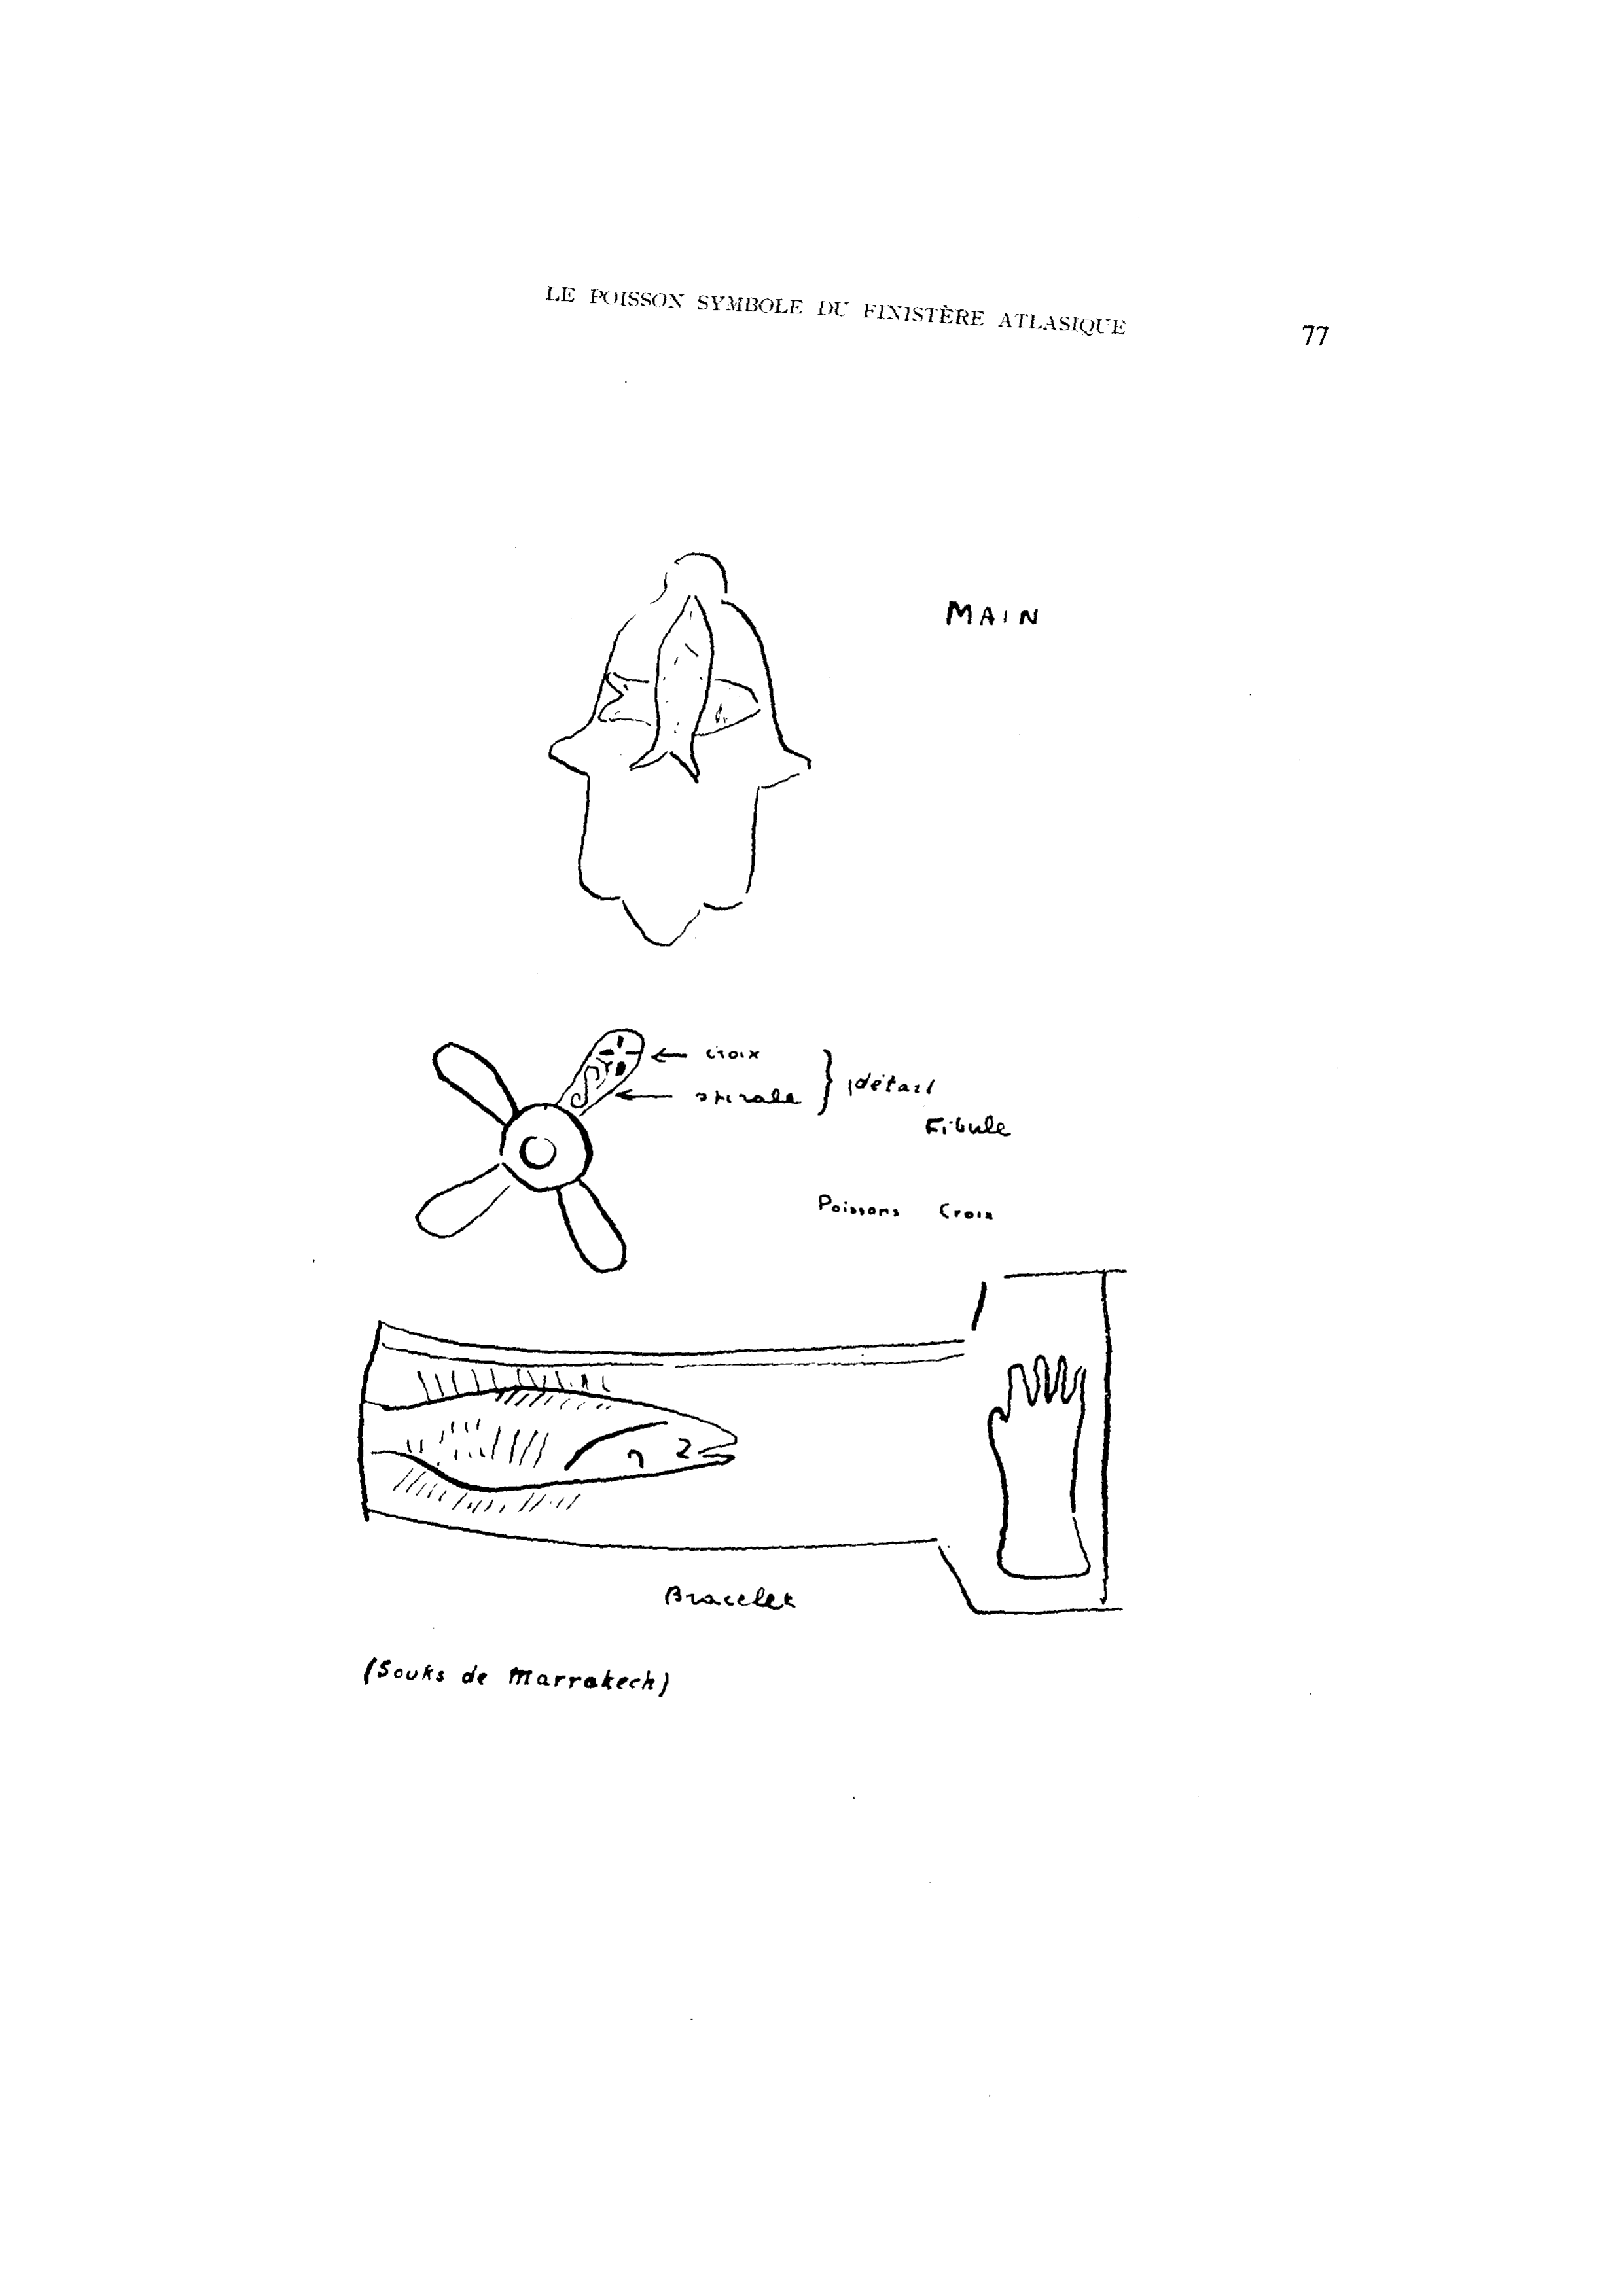 LE POISSON SYMBOLE DU FINISTÈRE ATLASIQUE
77
MAIN
croix
spirale
détail
Fibule
Poissons Croix
Bracelet
(Souks de Marrakech)